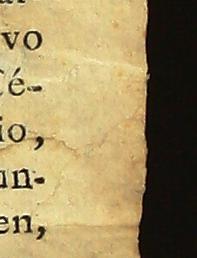 vo
Cé-
io,
un-
en,